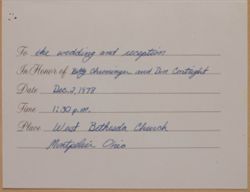 To the wedding and reception
In Honor of Betty and Don
Date Dec. 2, 1978
Time 1:30 p.m.
Place West Bethesda Church
Montpelier Ohio